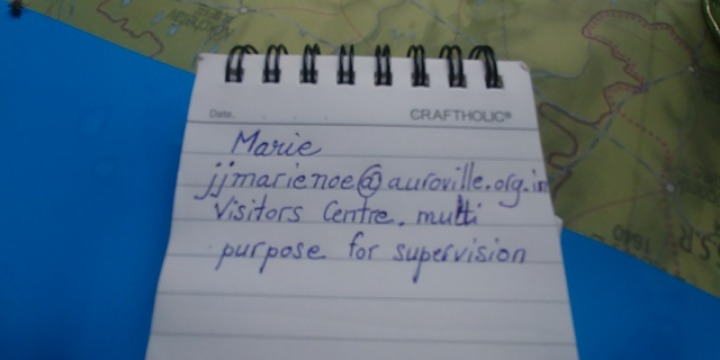 Date.
CRAFTHOLIC®
Marie
jjmarienoe@auroville.org.in
Visitors Centre. multi
purpose for supervision